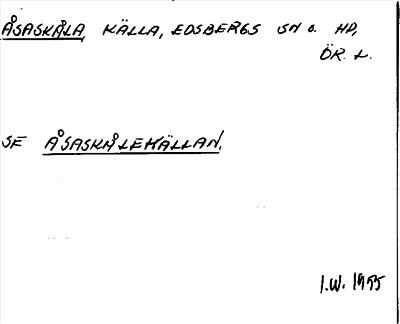 ÅSASKÅLA, KÄLLA, EDSBERGS SN O. HD,
ÖR. L.
SE ÅSASKÅLEKÄLLAN.
I.W. 1955